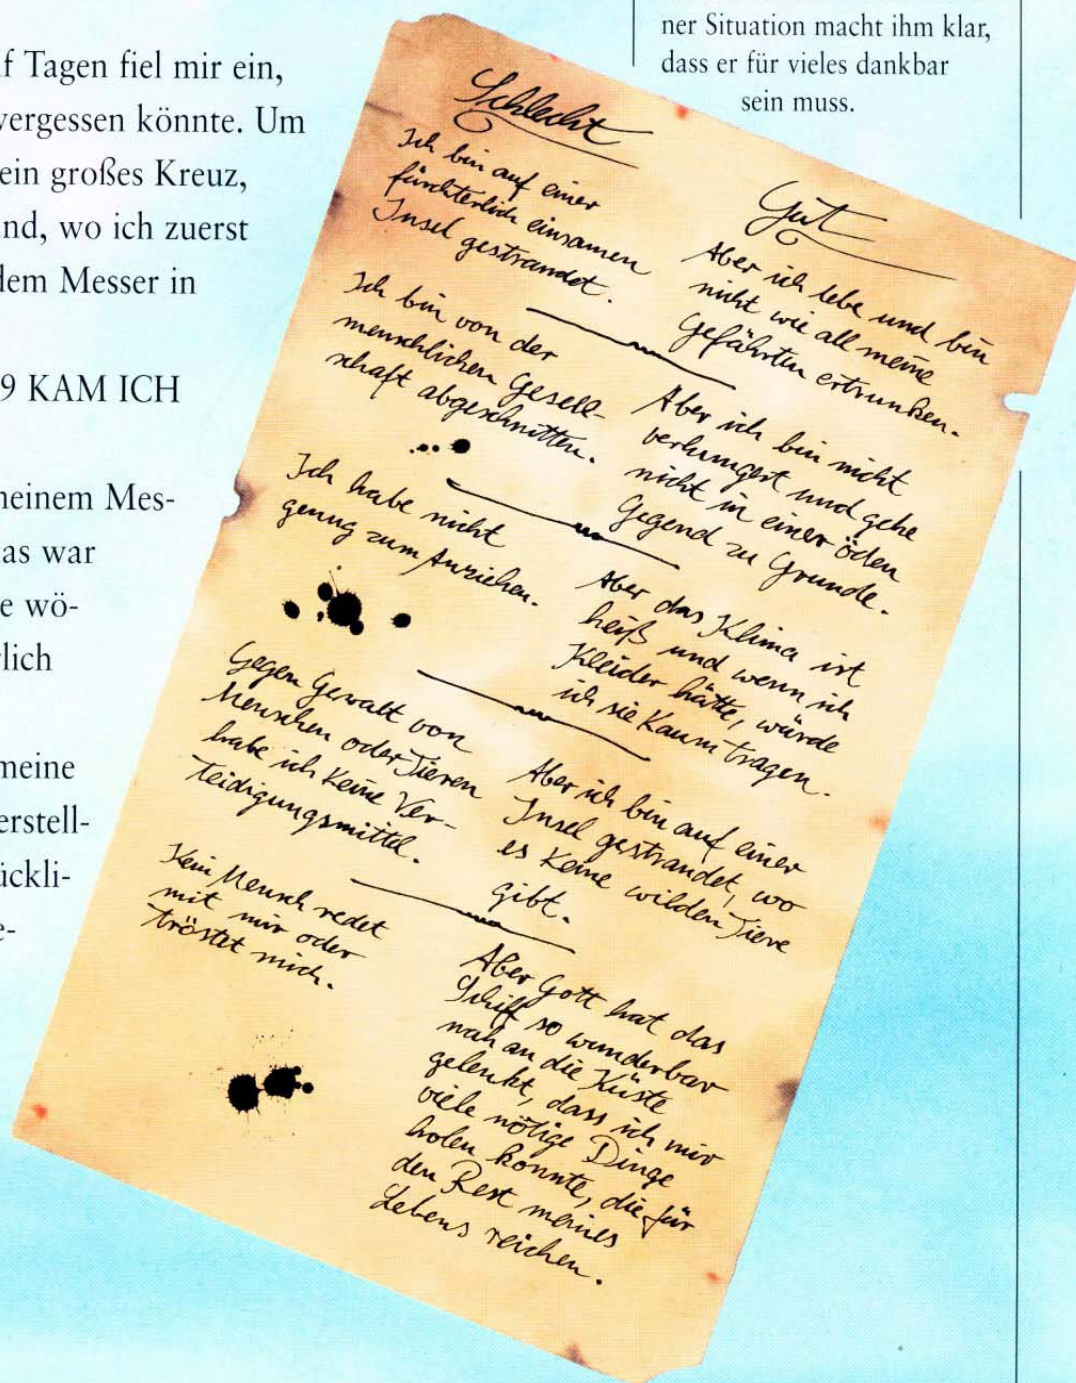 ner Situation macht ihm klar,
dass er für vieles dankbar
sein muss.
f Tagen fiel mir ein,
vergessen könnte. Um
ein großes Kreuz,
nd, wo ich zuerst
dem Messer in
9 KAM ICH
neinem Mes-
as war
e wö-
lich
neine
erstell-
ückli-
e-
Schlecht
Ich bin auf einer
fürchterlich einsamen
Insel gestrandet.
Ich bin von der
menschlichen Gesell-
schaft abgeschnitten.
Ich habe nicht
genug zum Anziehen.
Gegen Gewalt von
Menschen oder Tieren
habe ich keine Ver-
teidigungsmittel.
Kein Mensch redet
mit mir oder
tröstet mich.
Gut
Aber ich lebe und bin
nicht wie all meine
Gefährten ertrunken.
Aber ich bin nicht
verhungert und gehe
nicht in einer öden
Gegend zu Grunde.
Aber das Klima ist
heiß und wenn ich
Kleider hätte, würde
ich sie kaum tragen.
Aber ich bin auf einer
Insel gestrandet, wo
es keine wilden Tiere
gibt.
Aber Gott hat das
Schiff so wunderbar
nah an die Küste
gelenkt, dass ich mir
viele nötige Dinge
holen konnte, die für
den Rest meines
Lebens reichen.